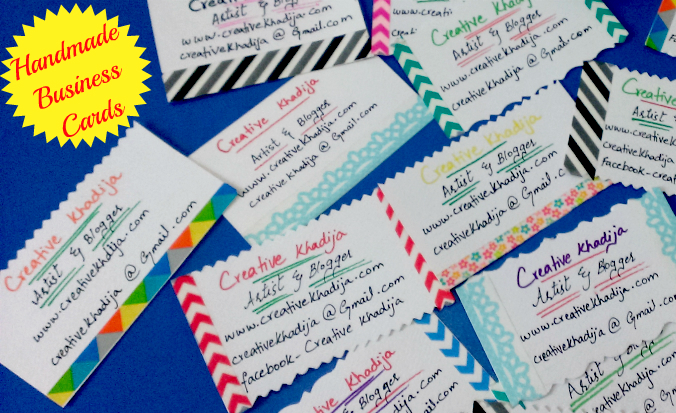 Handmade
Business
Cards
Creative Khadija
Artist & Blogger
www.creativekhadija.com
creativekhadija @ Gmail.com
www.creati
creat
Creative Khadija
Artist & Blogger
www.creativekhadija.com
creativekhadija @ Gmail.com
Creative Khadija
Artist & Blogger
www.creativekhadija.com
creativekhadija @ Gmail.com
Creative Khadija
Artist & Blogger
www.creativekhadija.com
creativekhadija @ Gmail.com
Creative Khadija
Artist & Blogger
www.creativekhadija.com
creativekhadija @ Gmail.com
Creative
Artist &
www.creative
creativekhadija
facebook-creat
Creative Khadija
Artist & Blogger
www.creativekhadija.com
creativekhadija @ Gmail.com
facebook- Creative Khadija
Creative Khadija
Artist & Blogger
www.creativekhadija.com
creativekhadija @ Gmail.com
Creative Khadija
Artist & Blogger
www.creativekhadija.com
Artist
www.creative